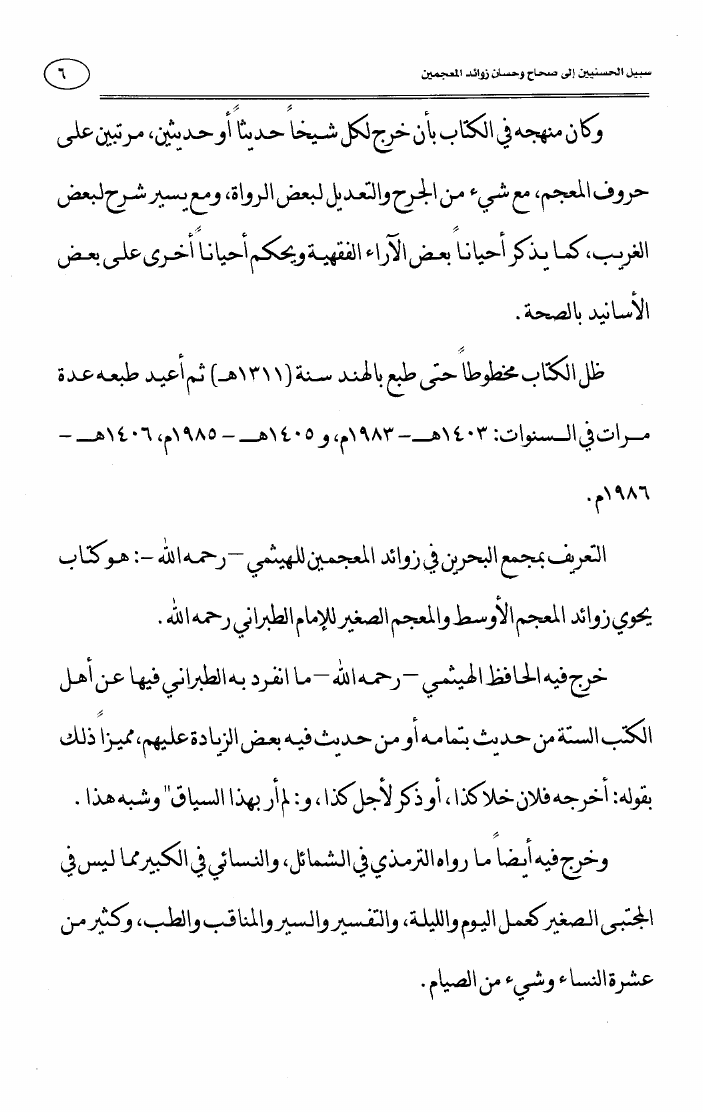 سبيل الحسنيين إلى صحاح وحسان زوائد المعجمين
٦
وكان منهجه في الكتاب بأن خرج لكل شيخاً حديثاً أو حديثين، مرتبين على
حروف المعجم، مع شيء من الجرح والتعديل لبعض الرواة، ومع يسير شرح لبعض
الغريب، كما يذكر أحياناً بعض الآراء الفقهية ويحكم أحياناً أخرى على بعض
الأسانيد بالصحة.
ظل الكتاب مخطوطاً حتى طبع بالهند سنة (١٣١١هـ) ثم أعيد طبعه عدة
مرات في السنوات: ١٤٠٣هـ – ١٩٨٣م، و ١٤٠٥هـ – ١٩٨٥م، ١٤٠٦هـ –
١٩٨٦م.
التعريف بمجمع البحرين في زوائد المعجمين للهيثمي – رحمه الله –: هو كتاب
يحوي زوائد المعجم الأوسط والمعجم الصغير للإمام الطبراني رحمه الله.
خرج فيه الحافظ الهيثمي – رحمه الله – ما انفرد به الطبراني فيها عن أهل
الكتب الستة من حديث بتمامه أو من حديث فيه بعض الزيادة عليهم، مميزاً ذلك
بقوله: أخرجه فلان خلا كذا، أو ذكر لأجل كذا، و: لم أر بهذا السياق" وشبه هذا.
وخرج فيه أيضاً ما رواه الترمذي في الشمائل، والنسائي في الكبير مما ليس في
المجتبى الصغير كعمل اليوم والليلة، والتفسير والسير والمناقب والطب، وكثير من
عشرة النساء وشيء من الصيام.